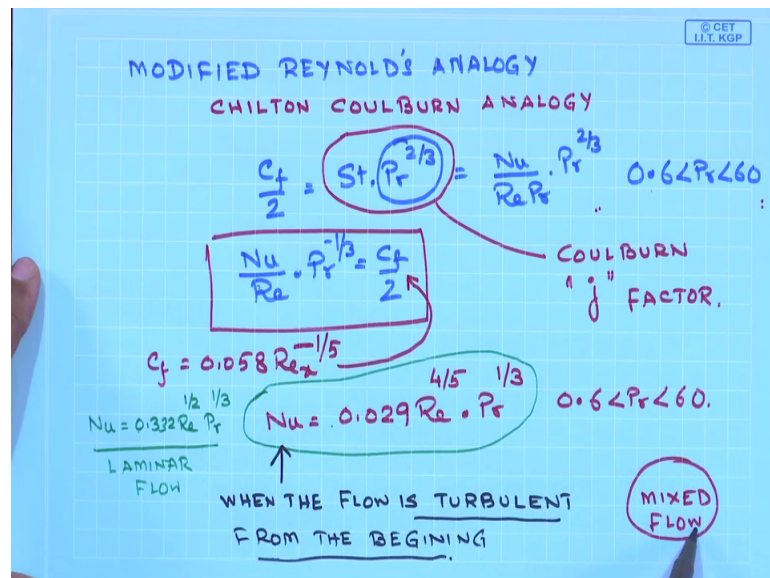 © CET
I.I.T. KGP
MODIFIED REYNOLD'S ANALOGY
CHILTON COULBURN ANALOGY
Cf/2 = St. Pr^2/3 = Nu/Re Pr . Pr^2/3 0.6<Pr<60
Nu/Re . Pr^-1/3 = Cf/2
COULBURN
"j" FACTOR.
Cf = 0.058 Rex^-1/5
Nu = 0.332 Re^1/2 Pr^1/3
LAMINAR
FLOW
Nu = 0.029 Re^4/5 . Pr^1/3 0.6<Pr<60.
WHEN THE FLOW IS TURBULENT
FROM THE BEGINING.
MIXED
FLOW